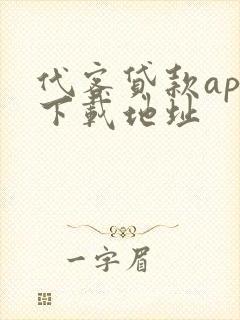 代客贷款ap
下载地址
一字眉